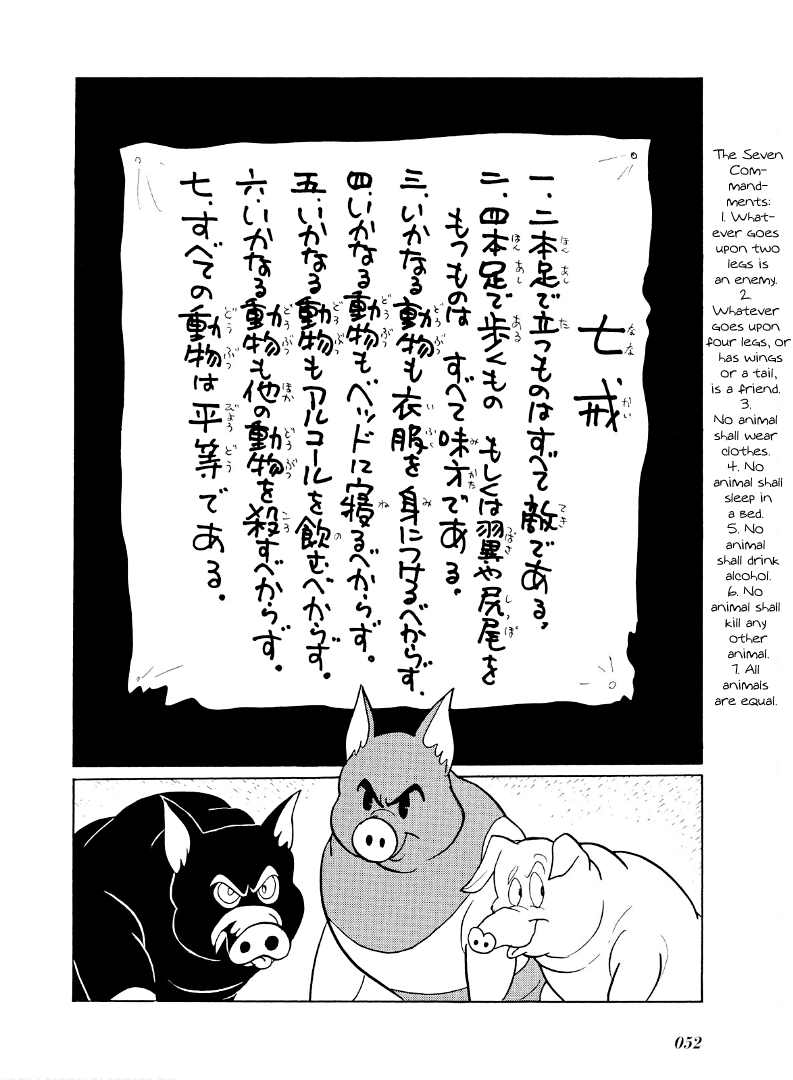 七戒
一．二本足で立つものはすべて敵である，
二．四本足で歩くもの もしくは羽翼や尻尾を
もつものは すべて味方である．
三．いかなる動物も衣服を身につけるべからず．
四．いかなる動物もベッドに寝るべからず．
五．いかなる動物もアルコールを飲むべからず．
六．いかなる動物も他の動物を殺すべからず．
七．すべての動物は平等である．
The Seven
Com-
mand-
ments:
1. What-
ever goes
upon two
legs is
an enemy.
2.
Whatever
goes upon
four legs, or
has wings
or a tail,
is a friend.
3.
No animal
shall wear
clothes.
4. No
animal shall
sleep in
a bed.
5. No
animal
shall drink
alcohol.
6. No
animal shall
kill any
other
animal.
7. All
animals
are equal.
052